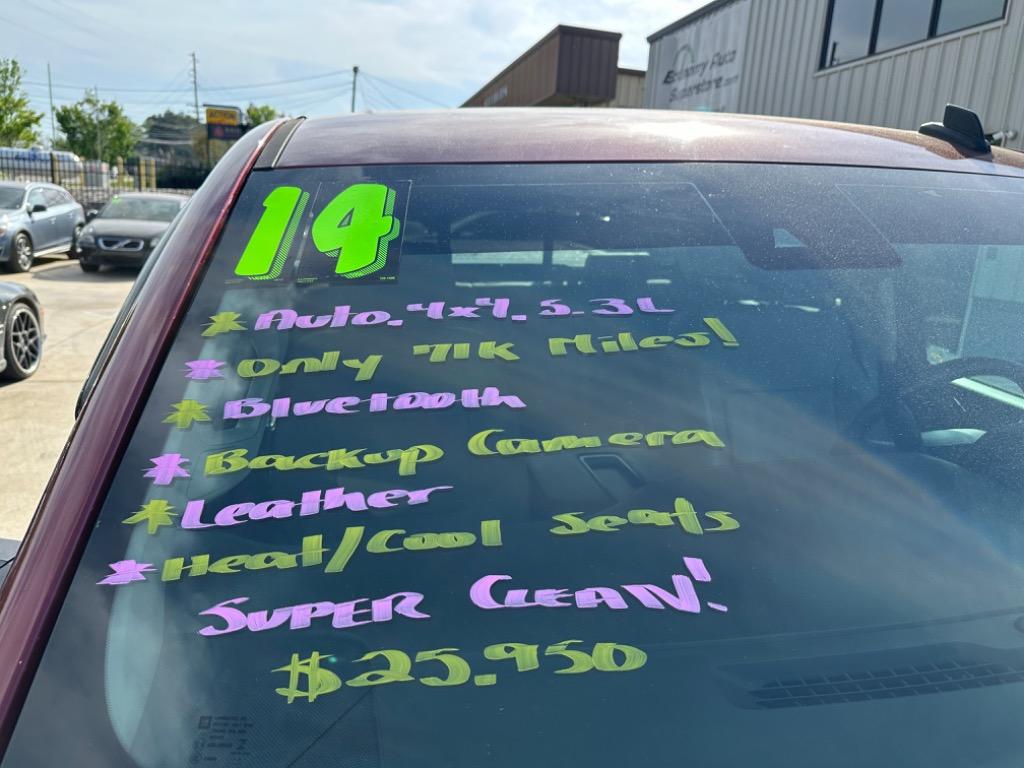 Economy Auto
Superstore.com
14
* Auto. 4x4. 5.3L
* Only 71K Miles!
* Bluetooth
* Backup Camera
* Leather
* Heat/Cool Seats
SUPER CLEAN!
$25.950